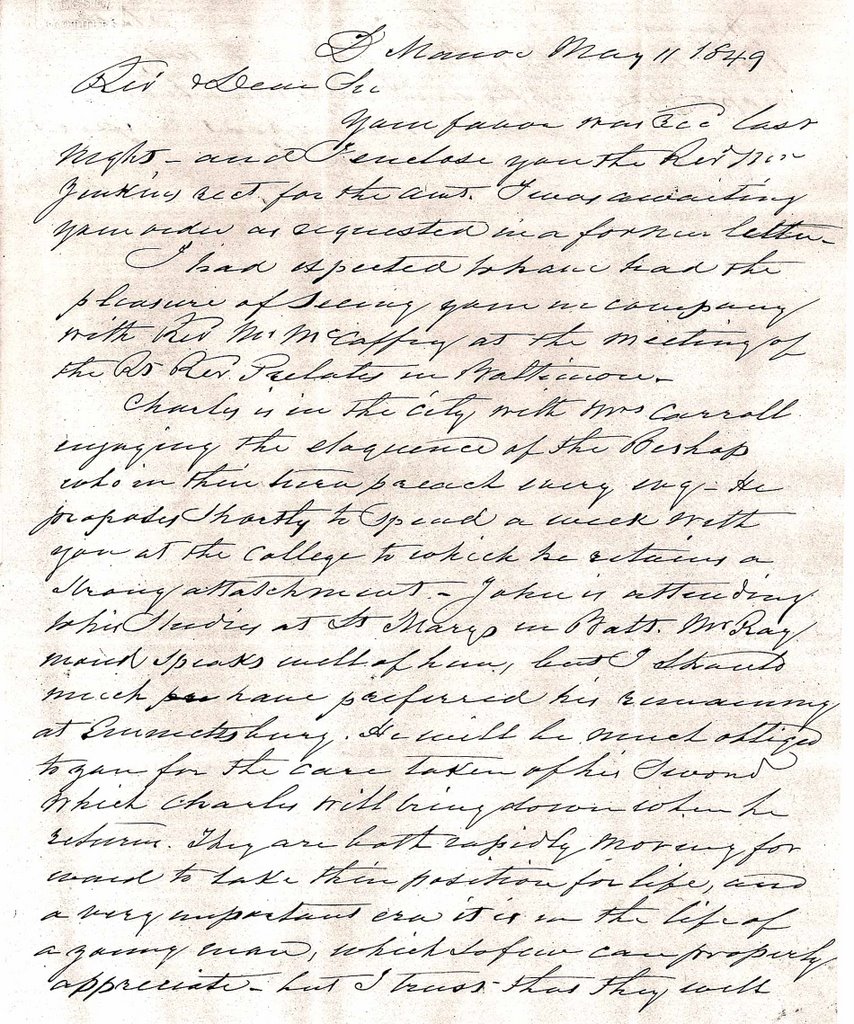 D Manor May 11 1849
Rev & Dear Sir
Your favor was Rec last
night - and I enclose you the Rev Mr
Jenkins rect. for the amt. I was awaiting
your order as requested in a former letter -
I had expected to have had the
pleasure of seeing you in company
with Rev Mr McCaffry at the meeting of
the Rt Rev. Prelates in Baltimore -
Charles is in the city with Mrs Carroll
enjoying the eloquence of the Bishop
who in their turn preach every evg - He
proposes shortly to spend a week with
you at the College to which he retains a
strong attatchment. - John is attending
to his studies at St Marys in Balt. Mr Ray
mond speaks well of him, but I should
much have preferred his remaining
at Emmettsburg. He will be much obliged
to you for the care taken of his Sword
which Charles will bring down when he
returns. They are both rapidly moving for
ward to take their position for life, and
a very important era it is in the life of
a young man, which so few can properly
appreciate - but I trust that they will